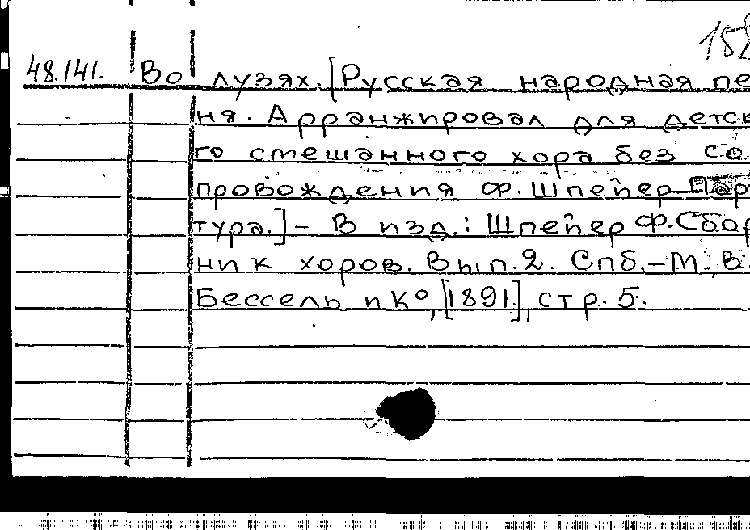 182
48.141. Во лузях. [Русская народная пе
ня. Арранжировал для детск
го смешанного хора без со
провождения Ф. Шпейер Пар
тура.] – В изд.: Шпейер Ф. Сбор
ник хоров. Вып. 2. Спб. – М. В.
Бессель и К°, [1891], стр. 5.